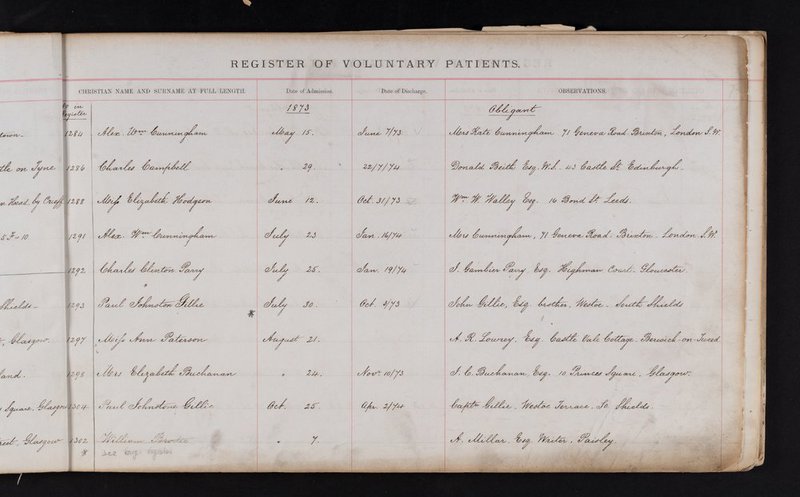 REGISTER OF VOLUNTARY PATIENTS.
CHRISTIAN NAME AND SURNAME AT FULL LENGTH. Date of Admission. Date of Discharge. OBSERVATIONS.
No in Register 1873 Obligant
1284 Alex. Wm. Cunningham May 15. June 7/73 Mrs Kate Cunningham 71 Geneva Road Brixton, London S.W.
on Tyne 1286 Charles Campbell " 29. 22/7/74 Donald Beith Esq. W.S. 43 Castle St. Edinburgh.
Head by Crieff 1288 Miss Elizabeth Hodgson June 12. Oct. 31/73 Wm. W. Walley Esq. 14 Bond St Leeds.
1291 Alex Wm Cunningham July 23 Jan. 16/74 Mrs Cunningham, 71 Geneva Road. Brixton. London. S.W.
1292 Charles Clinton Parry July 25. Jan. 19/74 T. Gambier Parry Esq. Highnam Court. Gloucester
Shields - 1293 Paul Johnston Gillie July 30. Oct. 3/73 John Gillie, Esq. brother, Westoe. South Shields
*
Glasgow. 1297 Miss Ann Paterson August 21. A. R. Lowrey, Esq. Castle Vale Cottage. Berwick-on-Tweed
1298 Mrs Elizabeth Buchanan " 24. Novr. 10/73 J. C. Buchanan, Esq. 10 Princes Square, Glasgow.
Square, Glasgow 1304 Paul Johnstone Gillie Oct. 25 Apr. 2/74 Captn Gillie. Westoe Terrace, So. Shields
Glasgow 1302 William Brodie " 7. A. Millar, Esq. Writer, Paisley
*